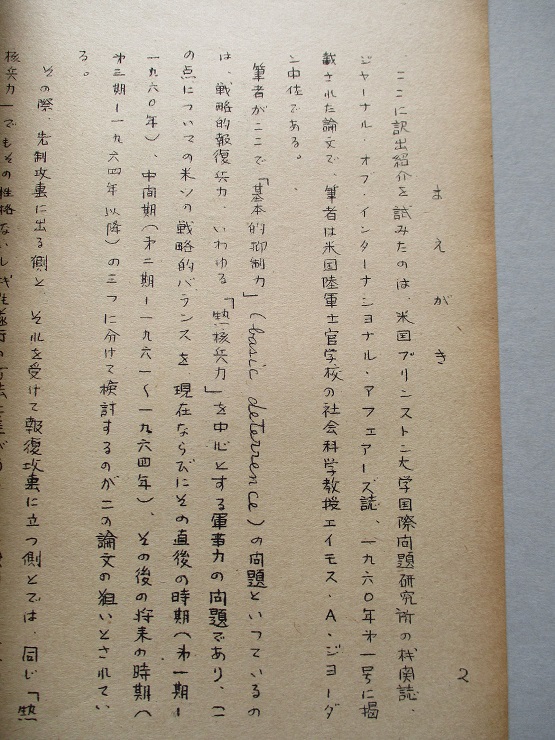 2
まえがき
ここに訳出紹介を試みたのは、米国プリンストン大学国際问題研究所の機関誌、
ジャーナル・オフ・インターナショナル・アフェアーズ誌、一九六〇年㐧一号に掲
載された論文で、筆者は米国陸軍士官学校の社会科学教授エイモス・A・ジョーダ
ン中佐である。
筆者がここで「基本的抑制力」(basic deterrence)の问題といっているの
は、戦略的報復兵力、いわゆる「熱核兵力」を中心とする軍事力の问題であり、こ
の点についての米ソの戦略的バランスを現在ならびにその直後の時期(㐧一期ー
一九六〇年)、中间期(㐧二期ー一九六一〜一九六四年)、その後の将来の時期(
㐧三期ー一九六四年以降)の三つに分けて検討するのがこの論文の狙いとされてい
る。
その際、先制攻撃に出る側と、それを受けて報復攻撃に立つ側とでは、同じ「熱
核兵力」でもその性格ないし